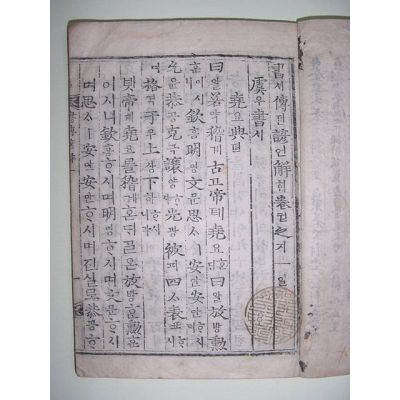 書셔傳젼諺언解ᄒᆡ卷권之지一일
虞우書셔
堯요典뎐
曰왈若약稽계古고帝뎨堯요혼ᄃᆡ曰왈放방勳훈
이시니欽흠明명文문思ᄉᆞㅣ安안安안ᄒᆞ시며
允윤恭공克극讓양ᄒᆞ샤光광被피四ᄉᆞ表표ᄒᆞ시며
格격于우上샹下하ᄒᆞ시니라
녯帝뎨堯요를稽계혼ᄃᆡ ᄀᆞᆯ온放방勳훈
이시니欽흠ᄒᆞ시며明명ᄒᆞ시며文문ᄒᆞ시
며思ᄉᆞㅣ安안安안ᄒᆞ시며진실로恭공ᄒᆞ시